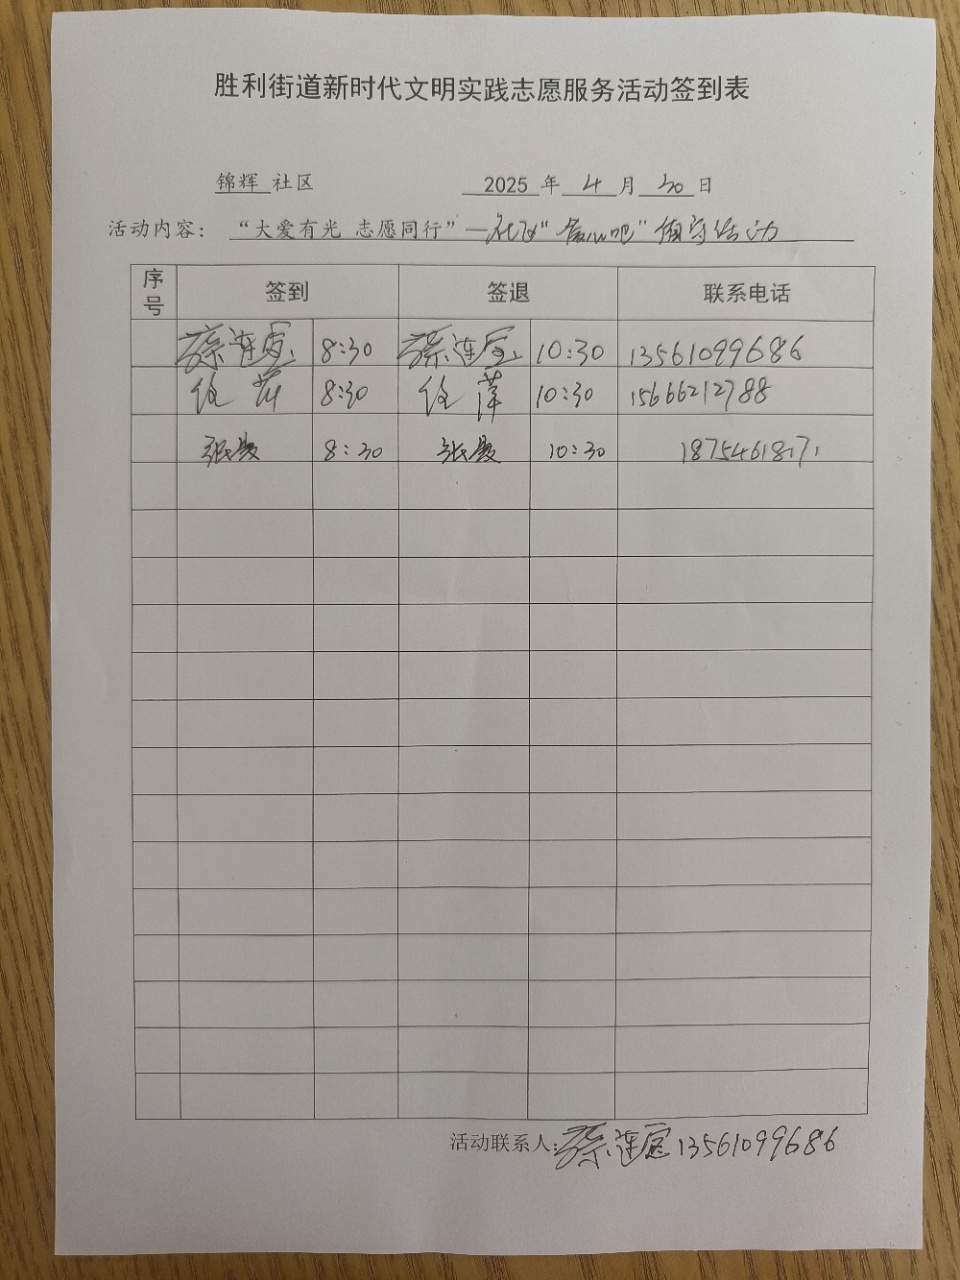 胜利街道新时代文明实践志愿服务活动签到表
锦辉 社区 2025 年 4 月 30 日
活动内容： “大爱有光 志愿同行”—社区“爱心吧”值守活动
序号 签到 签退 联系电话
8:30 10:30 13561099686
任萍 8:30 任萍 10:30 15666212788
8:30 10:30
活动联系人: 13561099686